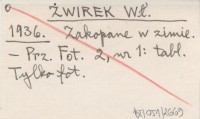 ŻWIREK Wł.
1936. Zakopane w zimie.
- Prz. Fot. 2, nr 1: tabl.
Tylko fot.